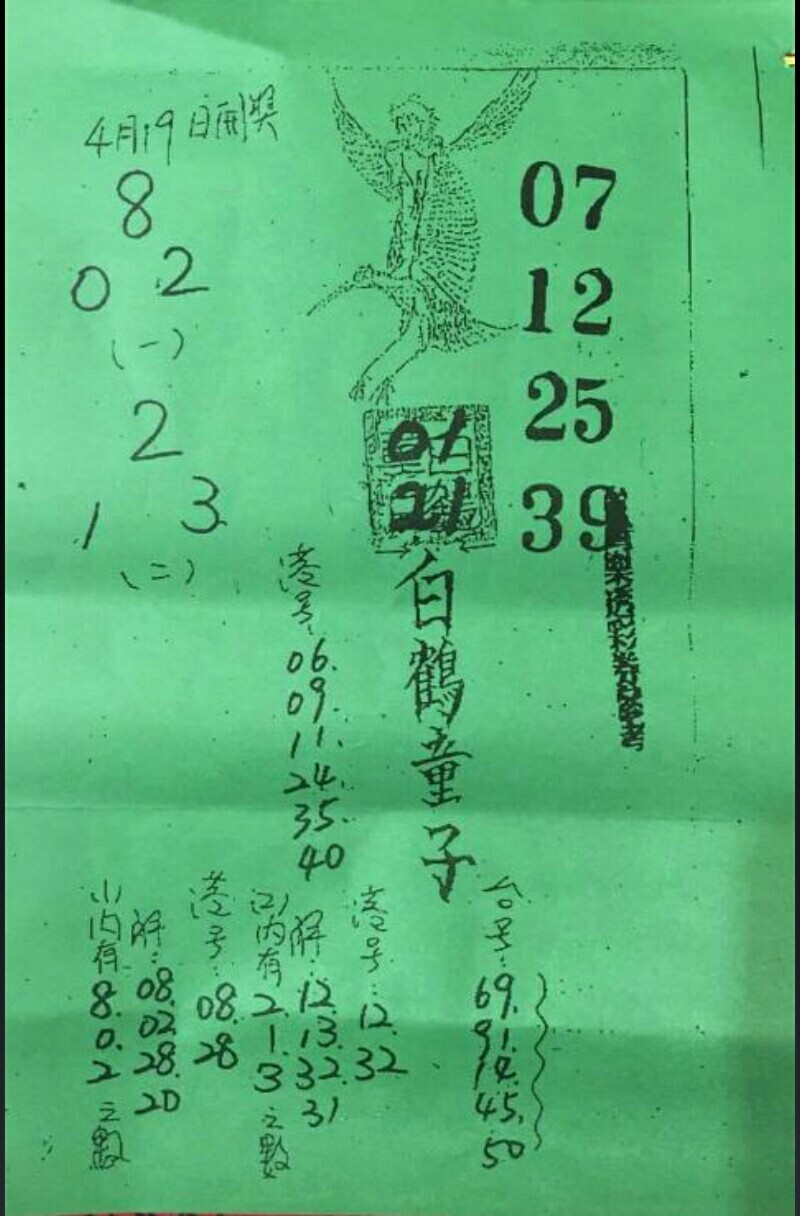 4月19日開獎
8
0 2
(一)
2
1 3
(二)
07
12
25
39
01
21
白鶴童子
港号:
06.
09.
11.
24.
35.
40
台号:
69.
91.
14.
45.
50
港号:
12.
32
解:
12.
13.
32.
31
(2)内有
2.
1.
3
之數
港号:
08.
28
解:
08.
02.
28.
20
(1)内有
8.
0.
2
之數